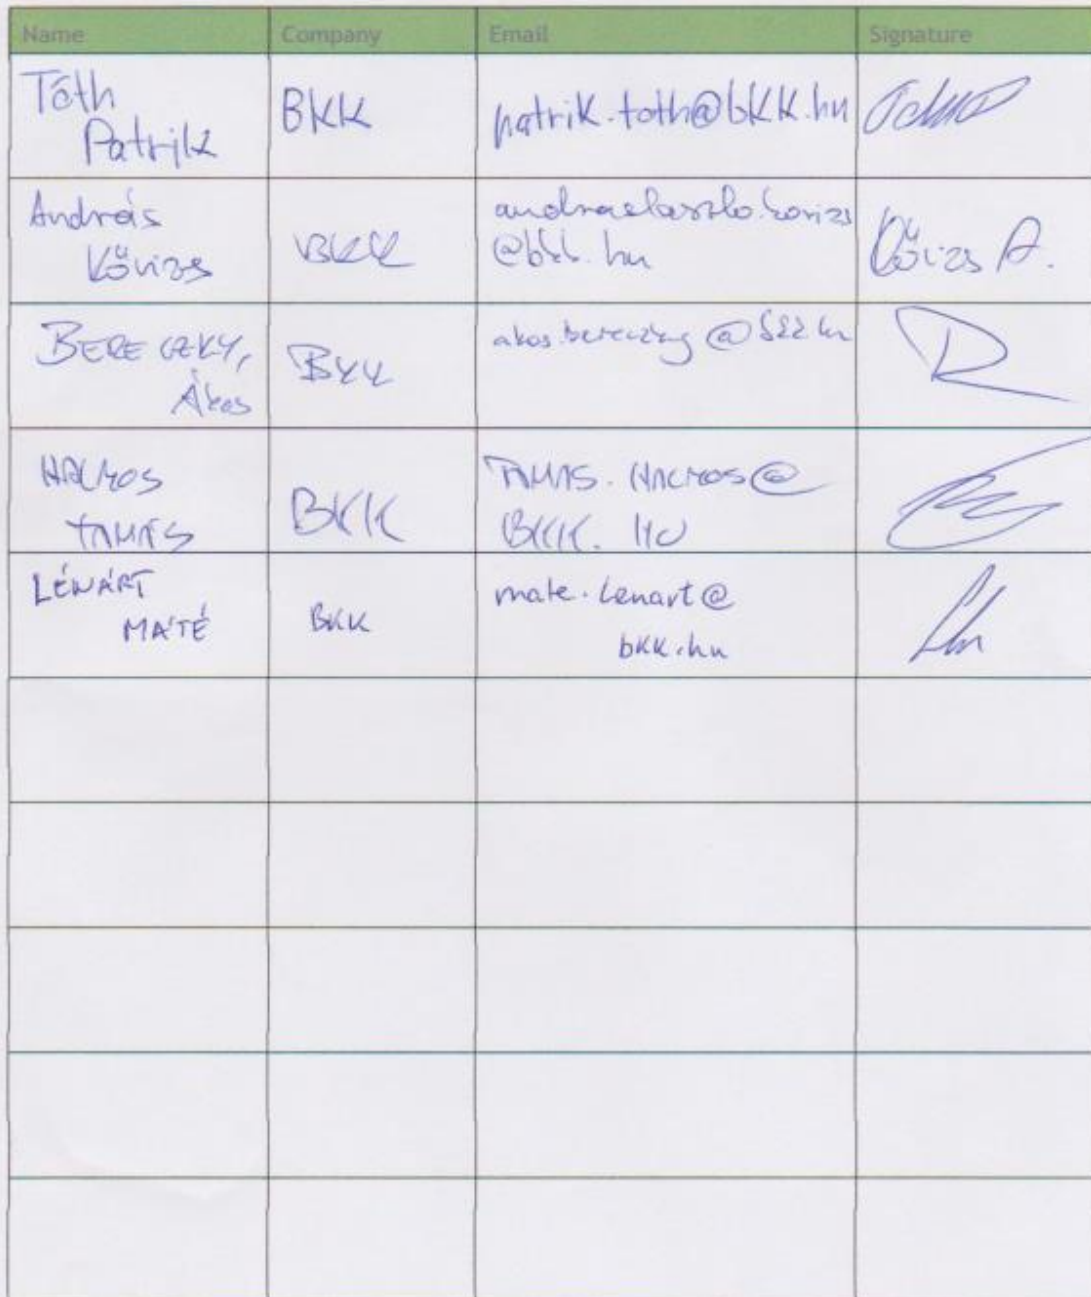 Name Company Email Signature
Tóth
Patrik
BKK
patrik.toth@bkk.hu
András
Kővizs
BKK
andraslaszlo.kovizs
@bkk.hu
Kővizs A.
BERECZKY,
Ákos
BKK
akos.bereczky@bkk.hu
HALMOS
TAMÁS
BKK
TAMAS.HALMOS@
BKK.HU
LÉNÁRT
MÁTÉ
BKK
mate.lenart@
bkk.hu